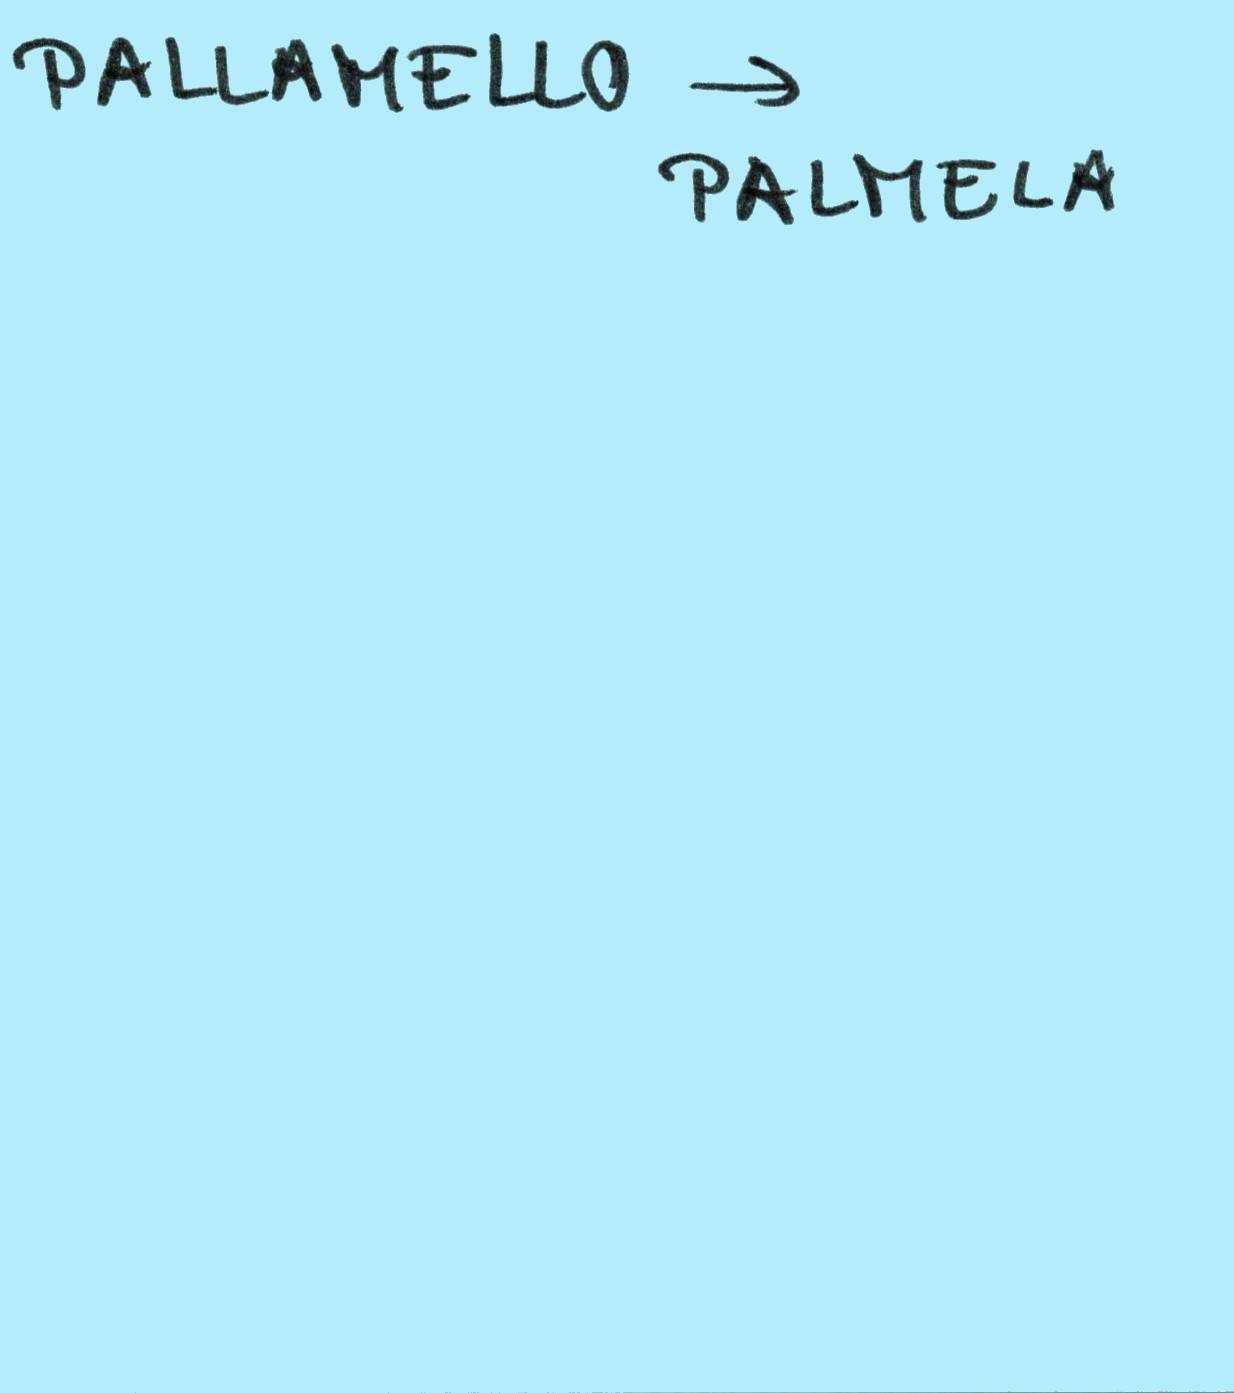 PALLAMELLO →
PALMELA